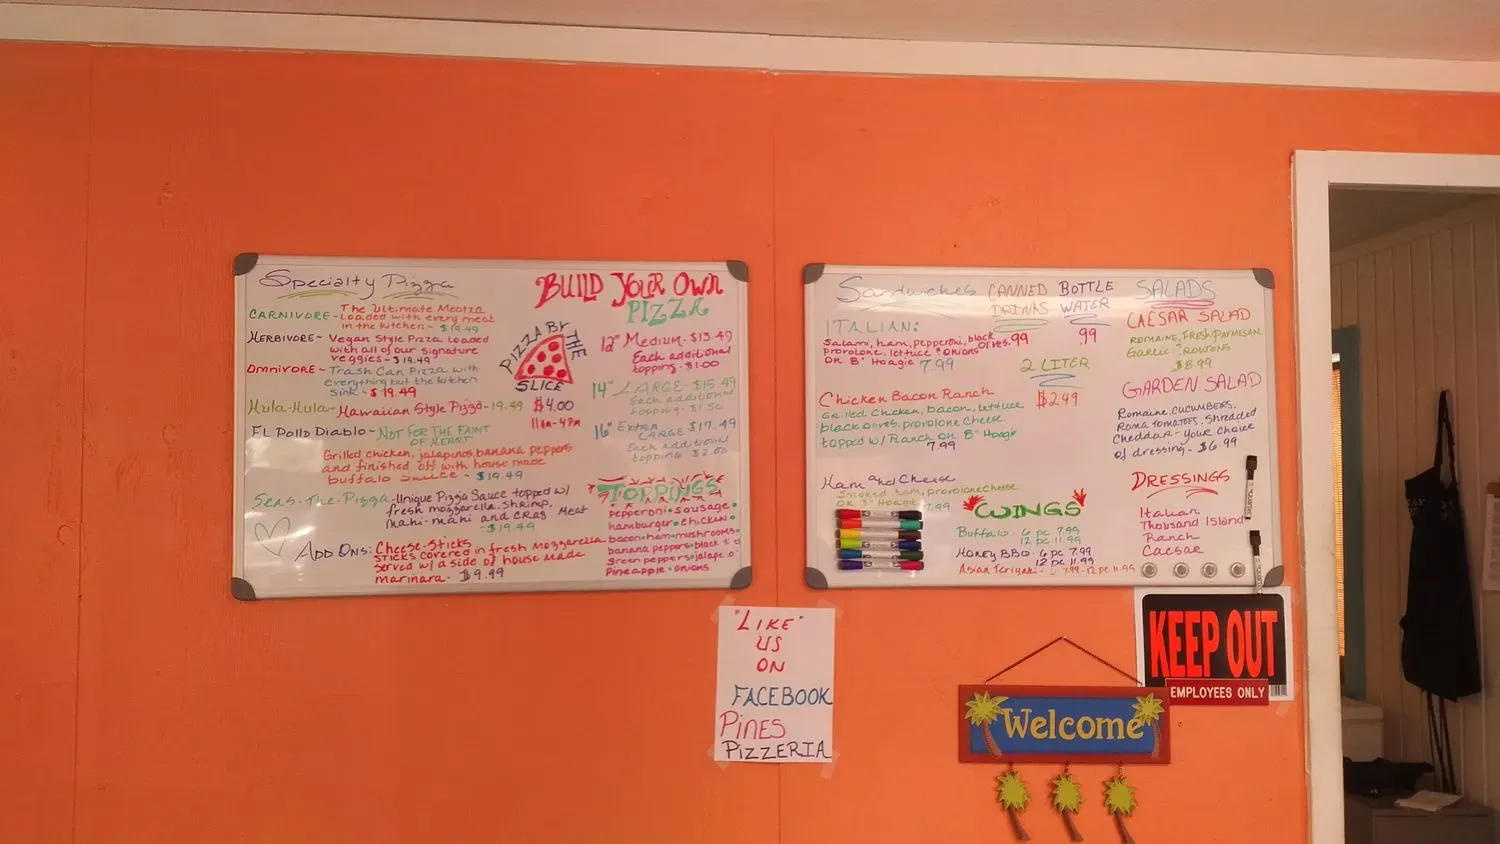 Specialty Pizza
CARNIVORE - The Ultimate Meatza
Loaded with every meat
in the kitchen - $19.49
HERBIVORE - Vegan Style Pizza Loaded
with all of our signature
veggies - $19.49
OMNIVORE - Trash Can Pizza with
everything but the kitchen
sink - $19.49
Hula-Hula - Hawaiian Style Pizza - 19.49
El Pollo Diablo - NOT FOR THE FAINT
OF HEART
Grilled chicken, jalapinos, banana peppers
and finished off with house made
buffalo sauce - $19.49
Seas-The-Pizza - Unique Pizza Sauce topped w/
fresh mozzarella, shrimp,
mahi-mahi and CRAB Meat
- $19.49
ADD ONS: Cheese-Sticks
STICKS covered in fresh Mozzarella
Served w/ a side of house made
marinara. $9.99
PIZZA BY THE
SLICE
$4.00
11am-4pm
BUILD YOUR OWN
PIZZA
12" MEDIUM - $13.49
Each additional
topping - $1.00
14" LARGE - $15.49
Each additional
topping - $1.50
16" EXTRA
LARGE $17.49
Each additional
topping $2.00
TOPPINGS
pepperoni • sausage •
hamburger • chicken •
bacon • ham • mushrooms •
banana peppers • black
green peppers • jalape
pineapple • onions
Sandwiches
ITALIAN:
Salami, ham, pepperoni, black olives,
provolone, lettuce & onions
on 8" Hoagie 7.99
Chicken Bacon Ranch
Grilled Chicken, bacon, lettuce
black olives, provolone cheese
topped w/ Ranch on 8" Hoagie
7.99
Ham and Cheese
Smoked ham, provolone cheese
on 8" Hoagie 7.99
CANNED
DRINKS
.99
BOTTLE
WATER
.99
2 LITER
$2.49
WINGS
Buffalo - 6 pc 7.99
12 pc 11.99
Honey BBQ - 6 pc 7.99
12 pc 11.99
Asian Teriyaki - 7.99 - 12 pc 11.99
SALADS
CAESAR SALAD
ROMAINE, FRESH PARMESAN
Garlic CROUTONS
$8.99
GARDEN SALAD
Romaine, CUCUMBERS,
ROMA TOMATOES, Shredded
Cheddar - your choice
of dressing - $6.99
DRESSINGS
Italian
Thousand Island
Ranch
Caesar
"LIKE"
US
ON
FACEBOOK
PINES
PIZZERIA
KEEP OUT
EMPLOYEES ONLY
Welcome